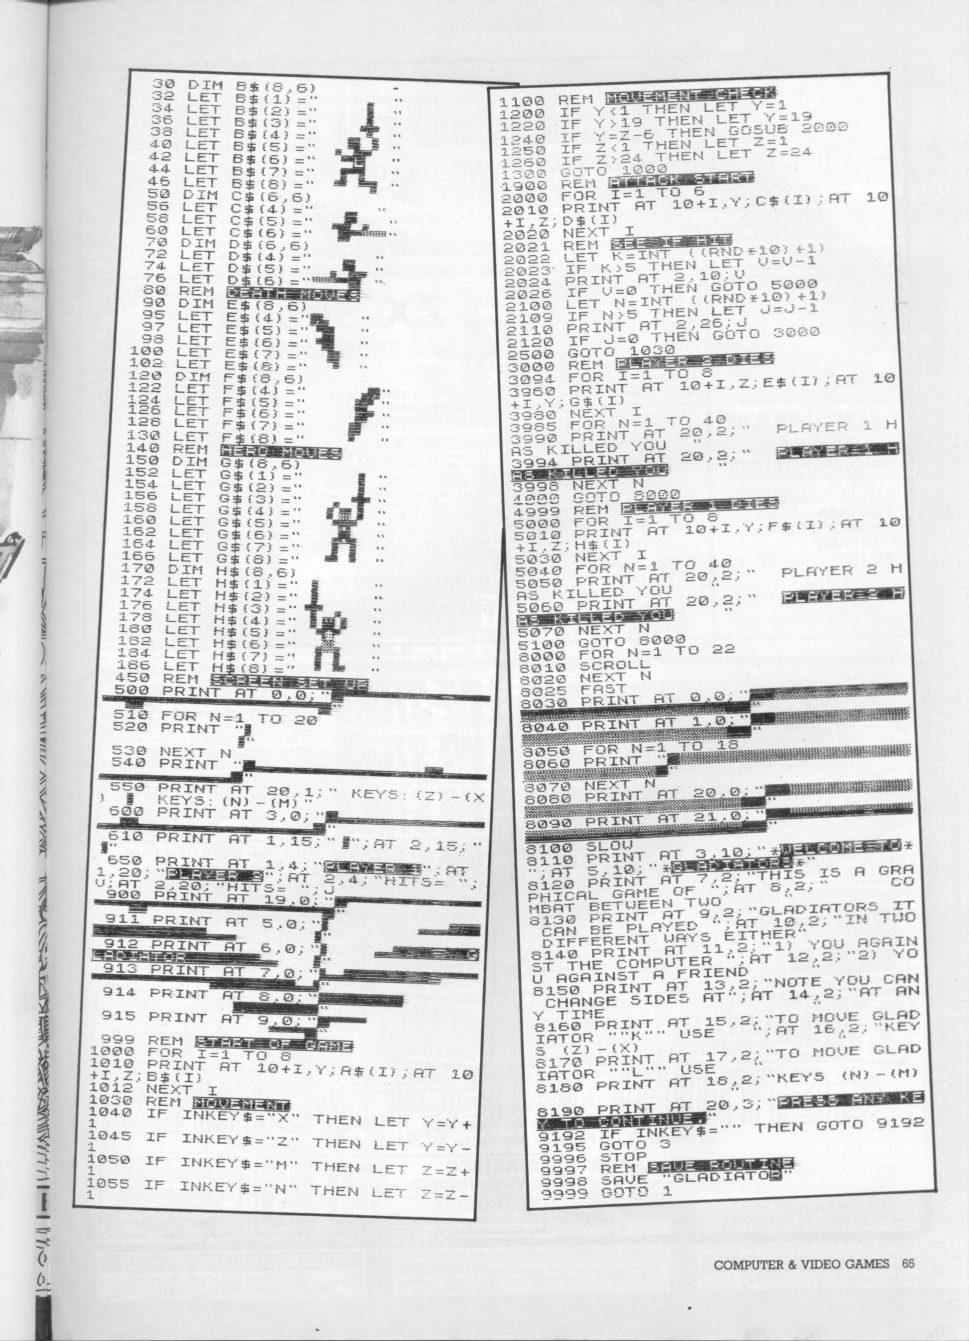 30 DIM B$(8,6)
32 LET B$(1)="      "
34 LET B$(2)="
36 LET B$(3)="      "
38 LET B$(4)="
40 LET B$(5)="      "
42 LET B$(6)="      "
44 LET B$(7)="      "
46 LET B$(8)="      "
50 DIM C$(6,6)
56 LET C$(4)="      "
58 LET C$(5)="      "
60 LET C$(6)="      "
70 DIM D$(6,6)
72 LET D$(4)="      "
74 LET D$(5)="      "
76 LET D$(6)="      "
80 REM DEATH MOVES
90 DIM E$(8,6)
95 LET E$(4)="
97 LET E$(5)="
98 LET E$(6)="
100 LET E$(7)="
102 LET E$(8)="
120 DIM F$(8,6)
122 LET F$(4)="
124 LET F$(5)="
126 LET F$(6)="
128 LET F$(7)="
130 LET F$(8)="
140 REM HERO MOVES
150 DIM G$(8,6)
152 LET G$(1)="      "
154 LET G$(2)="      "
156 LET G$(3)="      "
158 LET G$(4)="      "
160 LET G$(5)="      "
162 LET G$(6)="      "
164 LET G$(7)="      "
166 LET G$(8)="      "
170 DIM H$(8,6)
172 LET H$(1)="      "
174 LET H$(2)="      "
176 LET H$(3)="      "
178 LET H$(4)="      "
180 LET H$(5)="      "
182 LET H$(6)="      "
184 LET H$(7)="      "
186 LET H$(8)="      "
450 REM SCREEN SET UP
500 PRINT AT 0,0;"
"
510 FOR N=1 TO 20
520 PRINT "
"
530 NEXT N
540 PRINT "
"
550 PRINT AT 20,1;" KEYS:(Z)-(X
)   KEYS:(N)-(M)"
600 PRINT AT 3,0;"
"
610 PRINT AT 1,15;" ";AT 2,15;"
"
650 PRINT AT 1,4;"PLAYER 1";AT
1,20;"PLAYER 2";AT 2,4;"HITS= ";
V;AT 2,20;"HITS= ";J
900 PRINT AT 19,0;"
"
911 PRINT AT 5,0;"
"
912 PRINT AT 6,0;"
GLADIATOR "
913 PRINT AT 7,0;"
"
914 PRINT AT 8,0;"
"
915 PRINT AT 9,0;"
"
999 REM START OF GAME
1000 FOR I=1 TO 8
1010 PRINT AT 10+I,Y;A$(I);AT 10
+I,Z;B$(I)
1012 NEXT I
1030 REM MOVEMENT
1040 IF INKEY$="X" THEN LET Y=Y+
1
1045 IF INKEY$="Z" THEN LET Y=Y-
1
1050 IF INKEY$="M" THEN LET Z=Z+
1
1055 IF INKEY$="N" THEN LET Z=Z-
1
1100 REM MOVEMENT CHECK
1200 IF Y<1 THEN LET Y=1
1220 IF Y>19 THEN LET Y=19
1240 IF Y=Z-6 THEN GOSUB 2000
1250 IF Z<1 THEN LET Z=1
1260 IF Z>24 THEN LET Z=24
1300 GOTO 1000
1900 REM ATTACK START
2000 FOR I=1 TO 6
2010 PRINT AT 10+I,Y;C$(I);AT 10
+I,Z;D$(I)
2020 NEXT I
2021 REM SEE IF HIT
2022 LET K=INT ((RND*10)+1)
2023 IF K>5 THEN LET V=V-1
2024 PRINT AT 2,10;V
2026 IF V=0 THEN GOTO 5000
2100 LET N=INT ((RND*10)+1)
2109 IF N>5 THEN LET J=J-1
2110 PRINT AT 2,26;J
2120 IF J=0 THEN GOTO 3000
2500 GOTO 1030
3000 REM PLAYER 2 DIES
3094 FOR I=1 TO 8
3960 PRINT AT 10+I,Z;E$(I);AT 10
+I,Y;G$(I)
3980 NEXT I
3985 FOR N=1 TO 40
3990 PRINT AT 20,2;"  PLAYER 1 H
AS KILLED YOU  "
3994 PRINT AT 20,2;"  PLAYER 1 H
AS KILLED YOU   "
3998 NEXT N
4000 GOTO 8000
4999 REM PLAYER 1 DIES
5000 FOR I=1 TO 8
5010 PRINT AT 10+I,Y;F$(I);AT 10
+I,Z;H$(I)
5030 NEXT I
5040 FOR N=1 TO 40
5050 PRINT AT 20,2;"  PLAYER 2 H
AS KILLED YOU    "
5060 PRINT AT 20,2;"  PLAYER 2 H
AS KILLED YOU    "
5070 NEXT N
5100 GOTO 8000
8000 FOR N=1 TO 22
8010 SCROLL
8020 NEXT N
8025 FAST
8030 PRINT AT 0,0;"
"
8040 PRINT AT 1,0;"
"
8050 FOR N=1 TO 18
8060 PRINT "
"
8070 NEXT N
8080 PRINT AT 20,0;"
"
8090 PRINT AT 21,0;"
"
8100 SLOW
8110 PRINT AT 3,10;"*WELCOME TO*
";AT 5,10;" *GLADIATORS*"
8120 PRINT AT 7,2;"THIS IS A GRA
PHICAL GAME OF ";AT 8,2;"     CO
MBAT BETWEEN TWO     "
8130 PRINT AT 9,2;"GLADIATORS IT
CAN BE PLAYED ";AT 10,2;"IN TWO
DIFFERENT WAYS EITHER"
8140 PRINT AT 11,2;"1) YOU AGAIN
ST THE COMPUTER ";AT 12,2;"2) YO
U AGAINST A FRIEND     "
8150 PRINT AT 13,2;"NOTE YOU CAN
CHANGE SIDES AT";AT 14,2;"AT AN
Y TIME     "
8160 PRINT AT 15,2;"TO MOVE GLAD
IATOR ""K"" USE    ";AT 16,2;"KEY
S (Z)-(X)     "
8170 PRINT AT 17,2;"TO MOVE GLAD
IATOR ""L"" USE    "
8180 PRINT AT 18,2;"KEYS (N)-(M)
"
8190 PRINT AT 20,3;"PRESS ANY KE
Y TO CONTINUE."
9192 IF INKEY$="" THEN GOTO 9192
9195 GOTO 3
9996 STOP
9997 REM SAVE ROUTINE
9998 SAVE "GLADIATOR"
9999 GOTO 1
COMPUTER & VIDEO GAMES 65